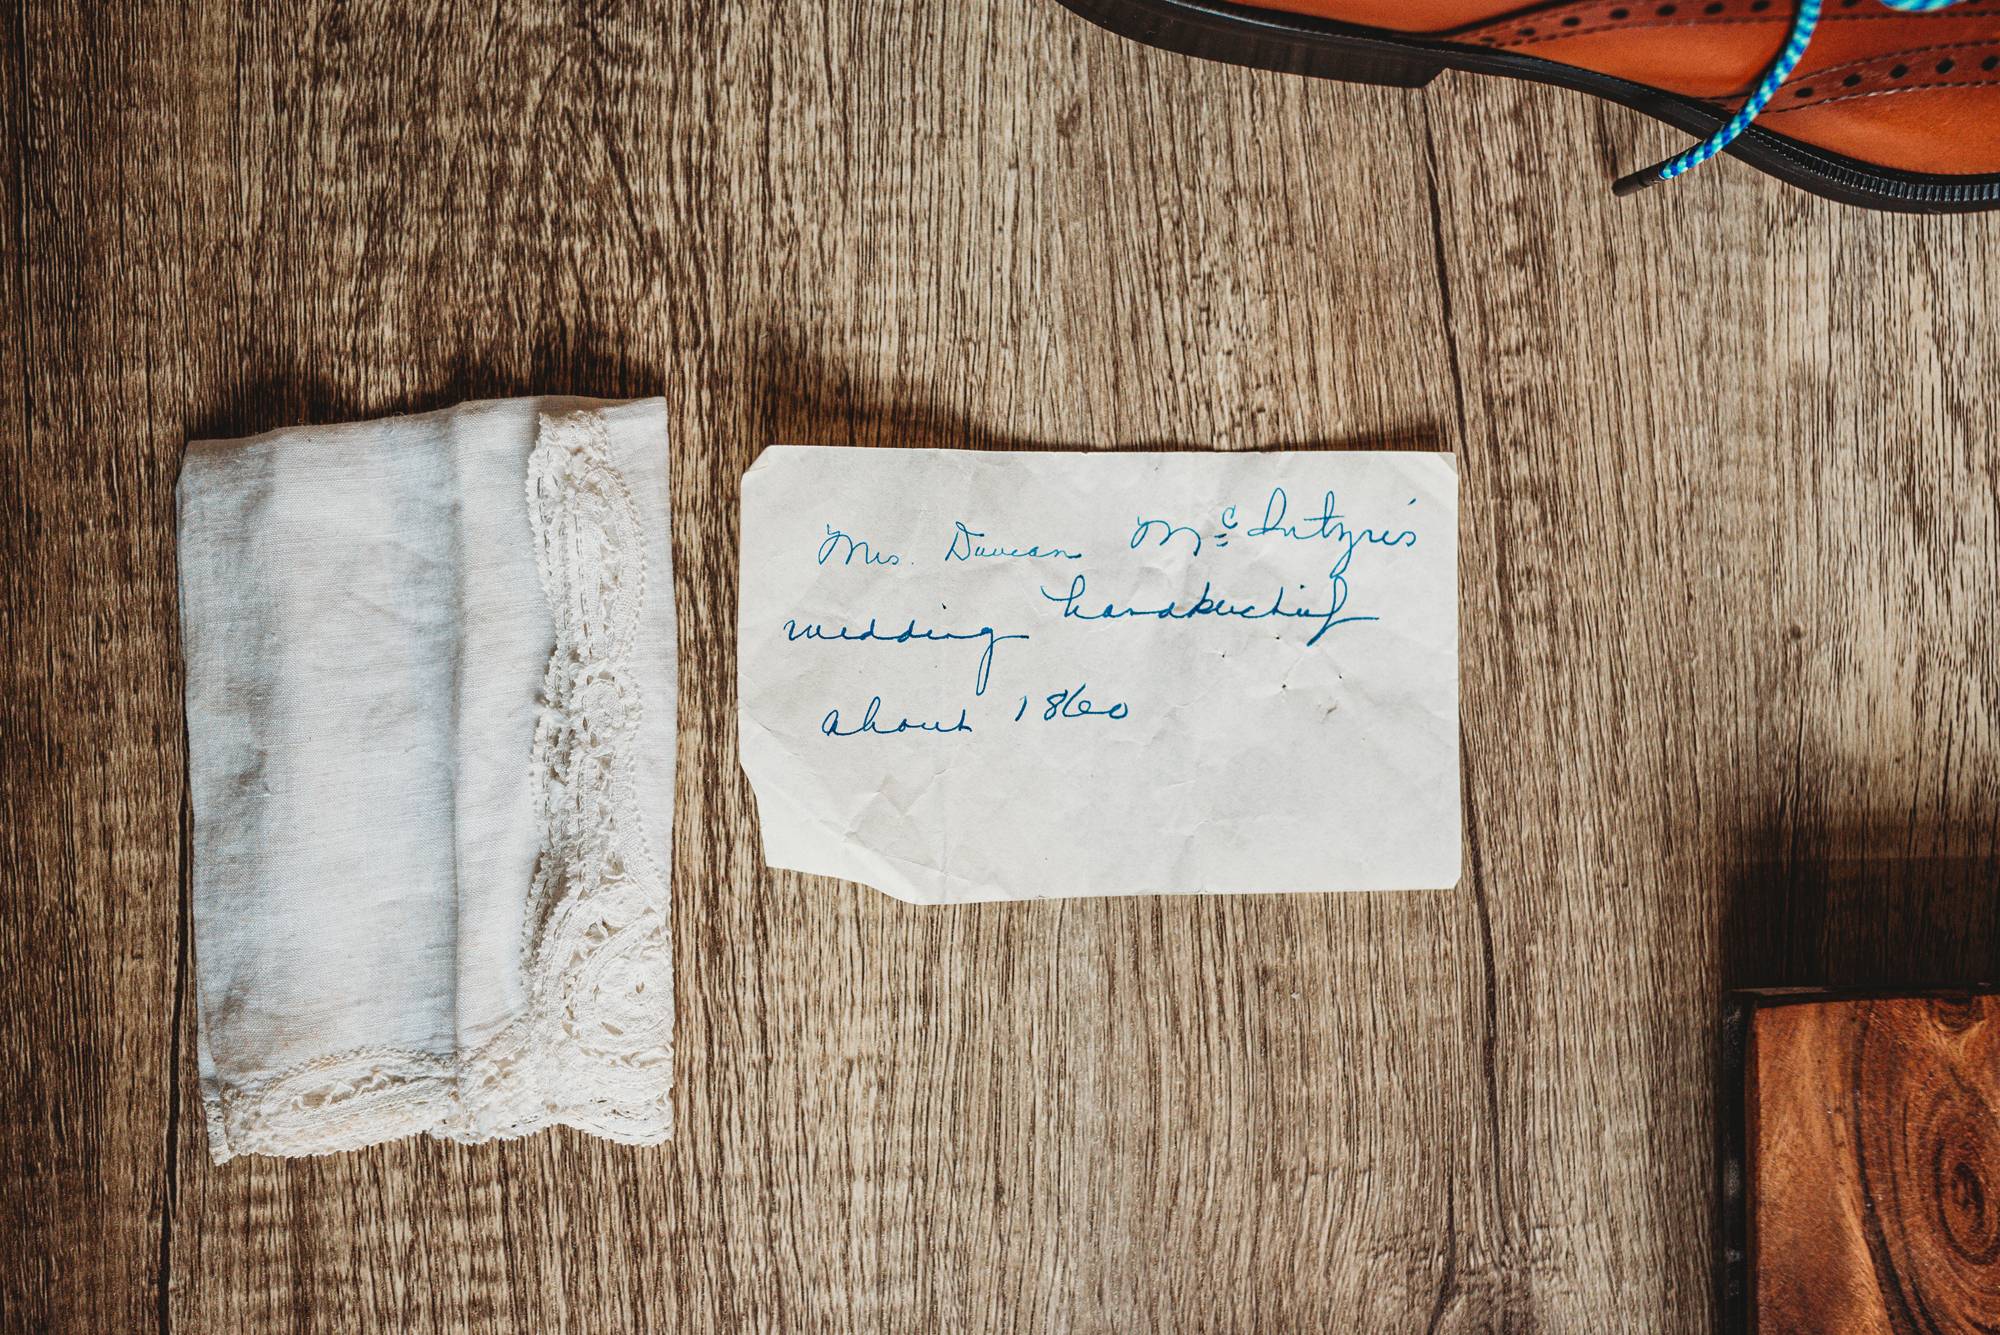 Mrs. Duncan McIntyre's
wedding handkerchief
about 1860